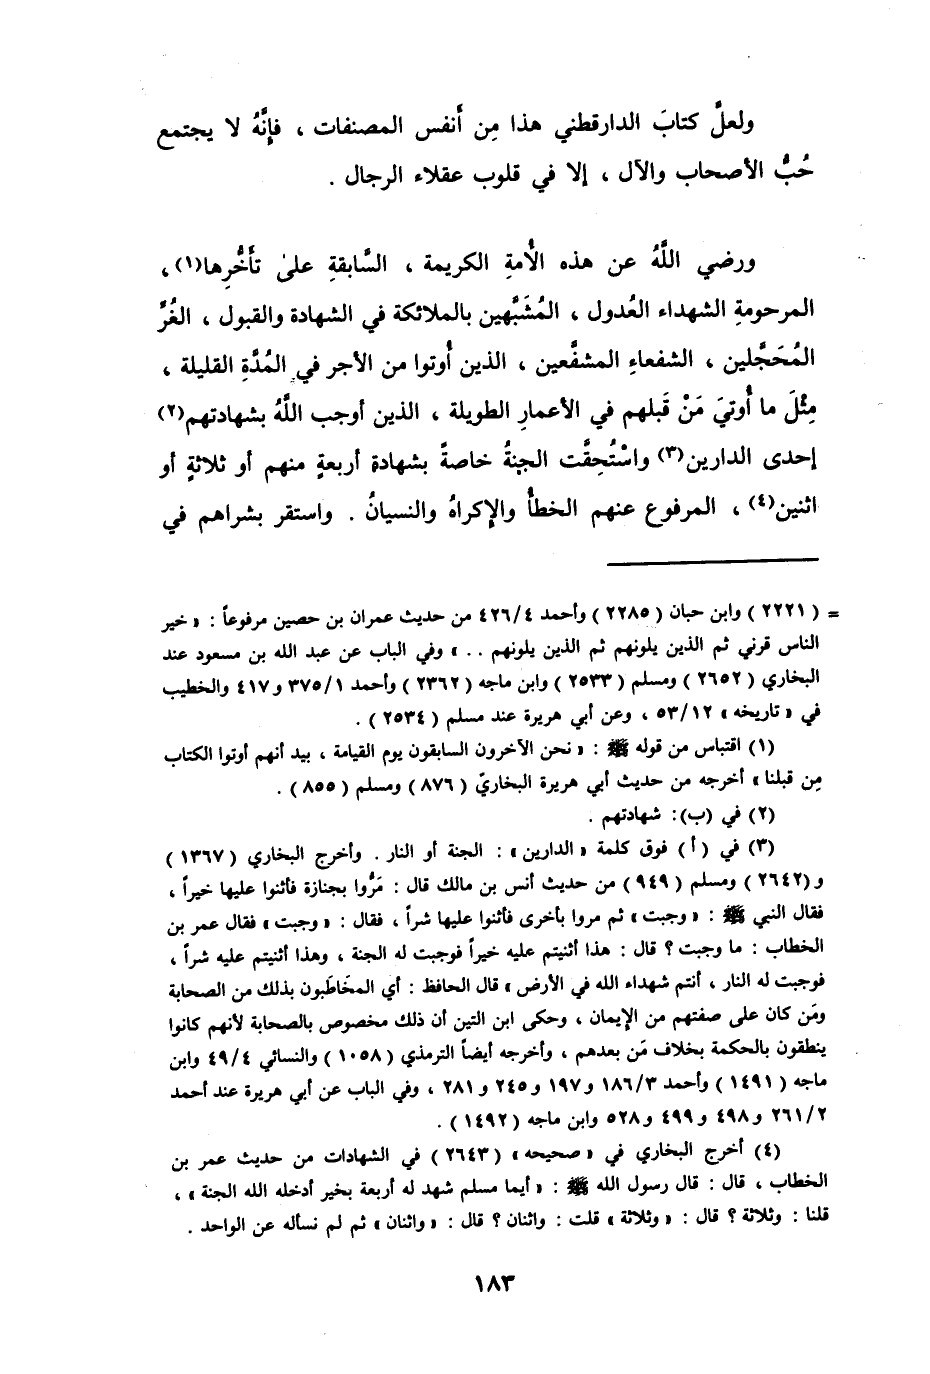 ولعلَّ كتابَ الدارقطني هذا مِن أَنفس المصنفات ، فإِنَّهُ لا يجتمع
حُبُّ الأصحاب والآل ، إلا في قلوب عقلاء الرجال .
ورضي اللَّهُ عن هذه الأُمةِ الكريمة ، السَّابقةِ على تأَخُّرِها(١) ،
المرحومةِ الشهداء العُدول ، المُشَبَّهين بالملائكة في الشهادة والقبول ، الغُرِّ
المُحَجَّلين ، الشفعاءِ المشفَّعين ، الذين أُوتوا من الأجر في المُدَّةِ القليلة ،
مِثْلَ ما أُوتيَ مَنْ قَبلهم في الأعمارِ الطويلة ، الذين أوجب اللَّهُ بشهادتهم(٢)
إحدى الدارين(٣) واسْتُحِقَّت الجنةُ خاصةً بشهادة أربعةٍ منهم أو ثلاثةٍ أو
اثنين(٤) ، المرفوع عنهم الخطأُ والإكراهُ والنسيانُ . واستقر بشراهم في
= ( ٢٢٢١ ) وابن حبان ( ٢٢٨٥ ) وأحمد ٤٢٦/٤ من حديث عمران بن حصين مرفوعاً : « خير
الناس قرني ثم الذين يلونهم ثم الذين يلونهم .. » وفي الباب عن عبد الله بن مسعود عند
البخاري ( ٢٦٥٢ ) ومسلم ( ٢٥٣٣ ) وابن ماجه ( ٢٣٦٢ ) وأحمد ٣٧٥/١ و ٤١٧ والخطيب
في « تاريخه » ٥٣/١٢ ، وعن أبي هريرة عند مسلم ( ٢٥٣٤ ) .
(١) اقتباس من قوله ﷺ : « نحن الآخرون السابقون يوم القيامة ، بيد أنهم أوتوا الكتاب
مِن قبلنا » أخرجه من حديث أبي هريرة البخاريّ ( ٨٧٦ ) ومسلم ( ٨٥٥ ) .
(٢) في (ب): شهادتهم .
(٣) في ( أ ) فوق كلمة « الدارين » : الجنة أو النار . وأخرج البخاري ( ١٣٦٧ )
و(٢٦٤٢ ) ومسلم ( ٩٤٩ ) من حديث أنس بن مالك قال : مَرُّوا بجنازة فأثنوا عليها خيراً ،
فقال النبي ﷺ : « وجبت » ثم مروا بأخرى فأثنوا عليها شراً ، فقال : « وجبت » فقال عمر بن
الخطاب : ما وجبت ؟ قال : هذا أثنيتم عليه خيراً فوجبت له الجنة ، وهذا أثنيتم عليه شراً ،
فوجبت له النار ، أنتم شهداء الله في الأرض » قال الحافظ : أي المخَاطَبون بذلك من الصحابة
ومَن كان على صفتهم من الإيمان ، وحكى ابن التين أن ذلك مخصوص بالصحابة لأنهم كانوا
ينطقون بالحكمة بخلاف مَن بعدهم ، وأخرجه أيضاً الترمذي ( ١٠٥٨ ) والنسائي ٤٩/٤ وابن
ماجه ( ١٤٩١ ) وأحمد ١٨٦/٣ و ١٩٧ و ٢٤٥ و ٢٨١ ، وفي الباب عن أبي هريرة عند أحمد
٢٦١/٢ و ٤٩٨ و ٤٩٩ و ٥٢٨ وابن ماجه ( ١٤٩٢ ) .
(٤) أخرج البخاري في « صحيحه » ( ٢٦٤٣ ) في الشهادات من حديث عمر بن
الخطاب ، قال : قال رسول الله ﷺ : « أيما مسلم شهد له أربعة بخير أدخله الله الجنة » ،
قلنا : وثلاثة ؟ قال : « وثلاثة » قلت : واثنان ؟ قال : « واثنان » ثم لم نسأله عن الواحد .
١٨٣